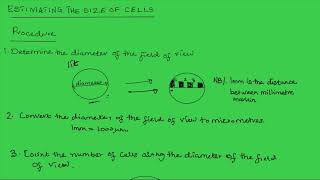 ESTIMATING THE SIZE OF CELLS
Procedure
1. Determine the diameter of the field of view
diameter
NB/. 1mm is the distance
between millimetre
2. Convert the diameter of the field of view to micrometres
1mm = 1000µm
3. Count the number of cells along the diameter of the field
of view.